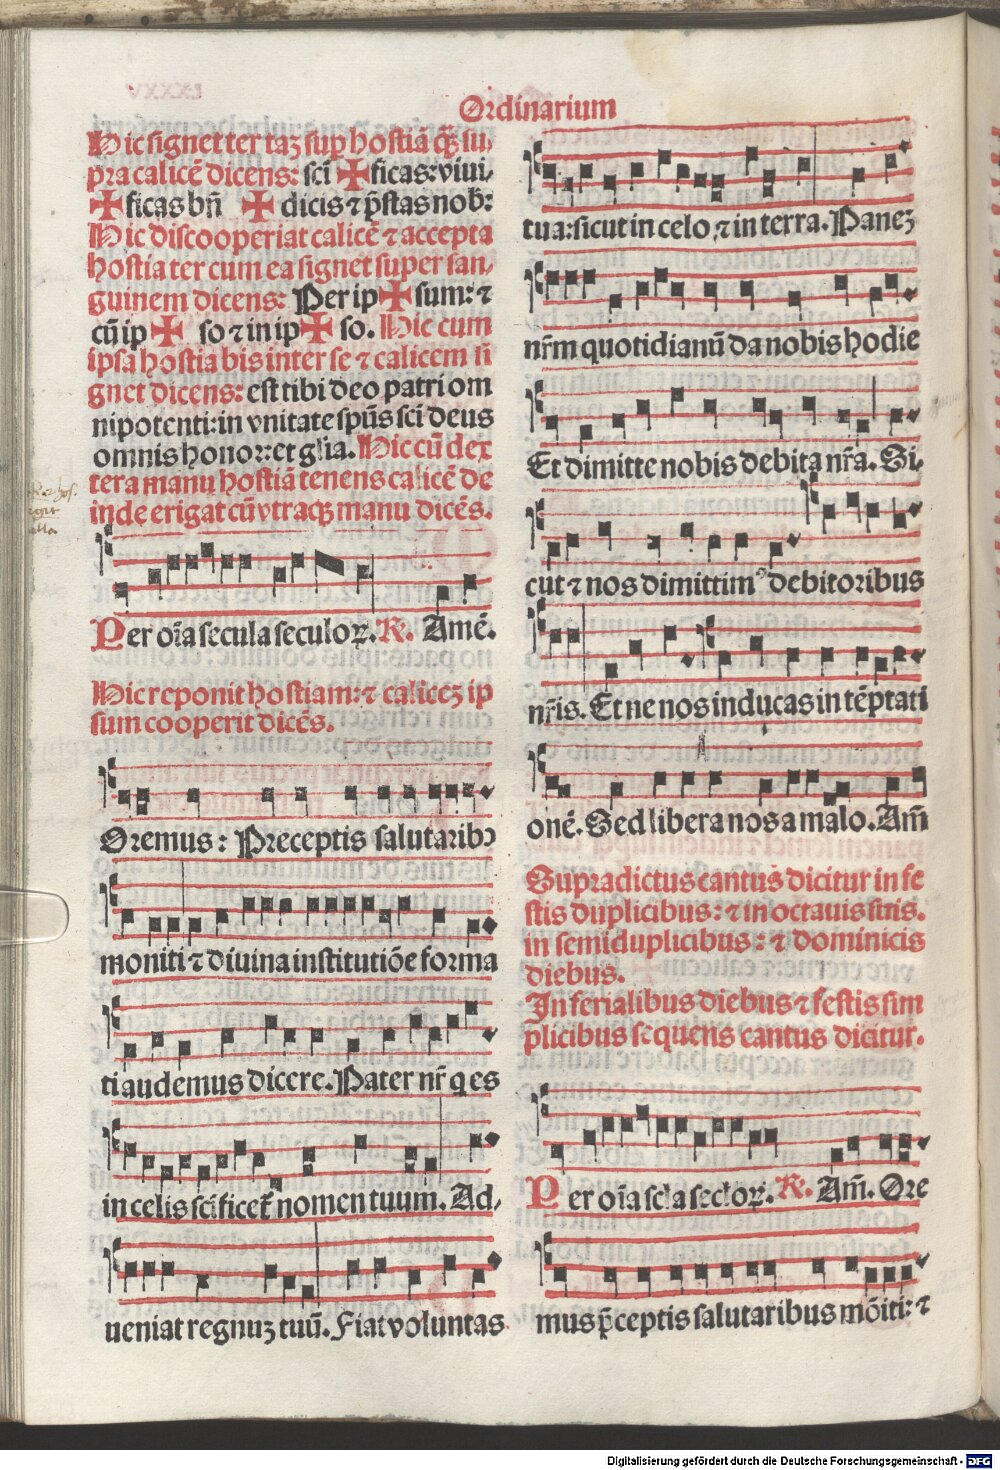 Ordinarium
Hic signet ter taʒ sup hostiã q̃ʒ su/
pra calicẽ dicens: sci ✠ ficas: viui/
✠ ficas bñ ✠ dicis ⁊ p̃stas nob̃:
Hic discooperiat calicẽ ⁊ accepta
hostia ter cum ea signet super san/
guinem dicens: Per ip ✠ sum: ⁊
cũ ip ✠ so ⁊ in ip ✠ so. Hic cum
ipsa hostia bis inter se ⁊ calicem si
gnet dicens: est tibi deo patri om
nipotenti: in vnitate spũs sci deus
omnis honor: et glia. Hic cũ dex
tera manu hostiã tenens calicẽ de
inde erigat cũ vtraqʒ manu dicẽs.
Per oĩa secula seculoꝝ. ℟. Amẽ.
Hic reponit hostiam: ⁊ caliceʒ ip
sum cooperit dicẽs.
Oremus: Preceptis salutaribꝰ
moniti ⁊ diuina institutiõe forma
ti audemus dicere. Pater nr̃ q es
in celis scificet᷑ nomen tuum. Ad/
ueniat regnuʒ tuũ. Fiat voluntas
tua: sicut in celo ⁊ in terra. Paneʒ
nr̃m quotidianũ da nobis hodie
Et dimitte nobis debita nr̃a. Si/
cut ⁊ nos dimittimꝰ debitoribus
nr̃is. Et ne nos inducas in tẽptati
onẽ. Sed libera nos a malo. Am̃
Supradictus cantus dicitur in fe
stis duplicibus: ⁊ in octauis suis.
in semiduplicibus: ⁊ dominicis
diebus.
In ferialibus diebus ⁊ festis sim
plicibus sequens cantus dicitur.
Per oĩa scla secloꝝ. ℟. Am̃. Ore
mus p̃ceptis salutaribus mõiti: ⁊
Digitalisierung gefördert durch die Deutsche Forschungsgemeinschaft - DFG